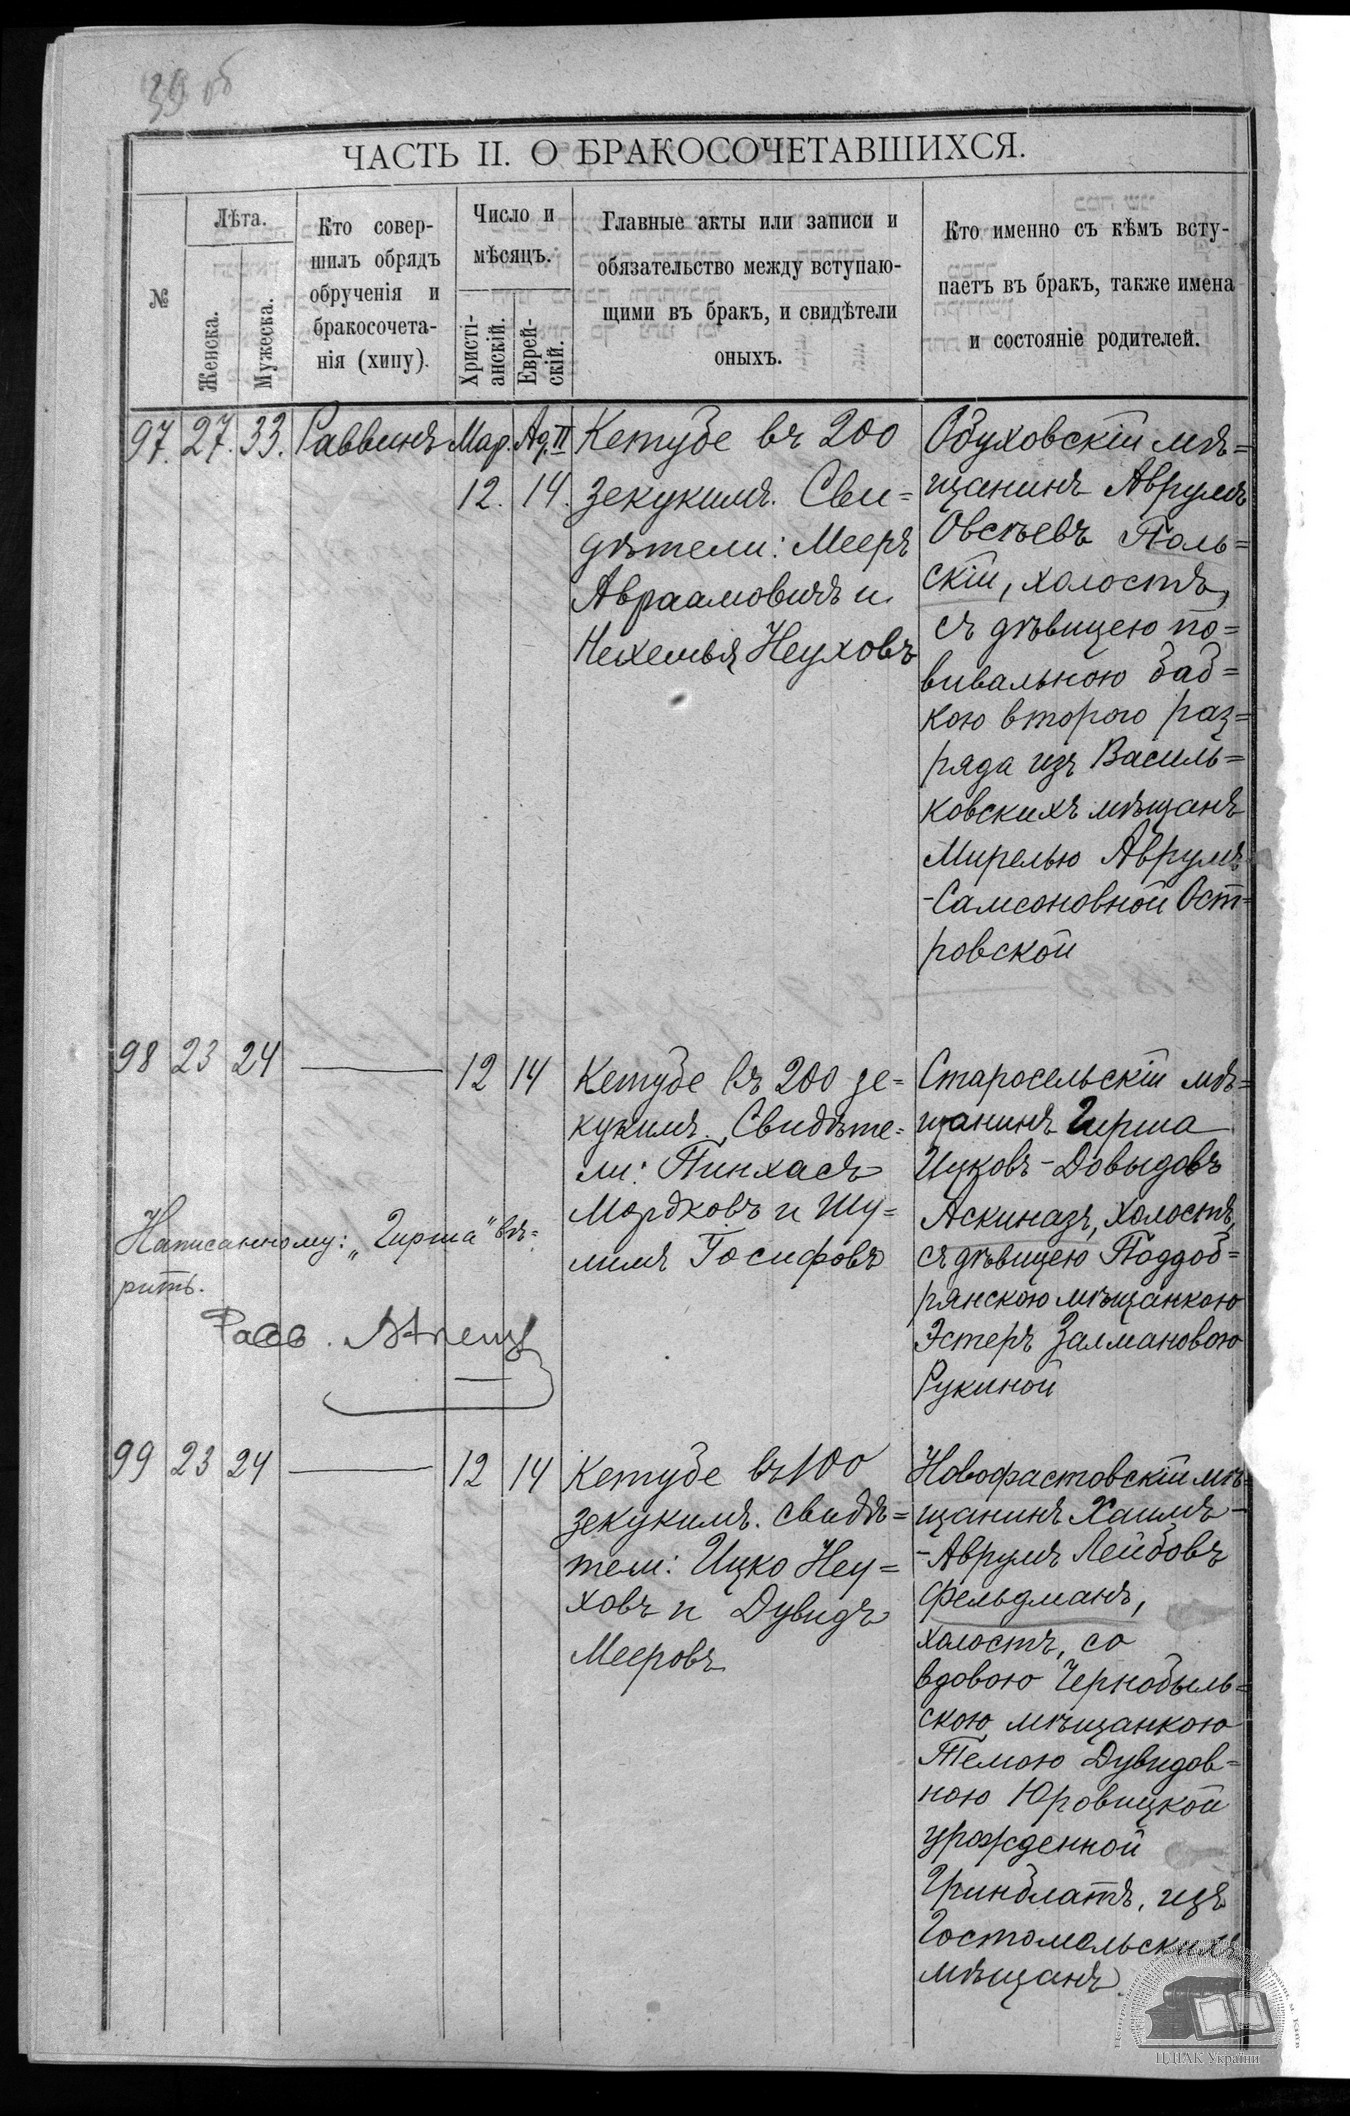 39 об
ЧАСТЬ II. О БРАКОСОЧЕТАВШИХСЯ.
№
Лѣта.
Женска.
Мужеска.
Кто совер-
шилъ обрядъ
обрученія и
бракосочета-
нія (хипу).
Число и
мѣсяцъ.
Христі-
анскій.
Еврей-
скій.
Главные акты или записи и
обязательство между вступаю-
щими въ бракъ, и свидѣтели
оныхъ.
Кто именно съ кѣмъ всту-
паетъ въ бракъ, также имена
и состояніе родителей.
97. 27. 33. Раввинъ Мар. Ад. II
12. 14.
Кетубе въ 200
зекукимъ. Сви=
дѣтели: Мееръ
Авраамовичъ и
Нехемья Неуховъ
Обуховскій мѣ=
щанинъ Аврумъ
Овсѣевъ Поль=
скій, холостъ,
съ дѣвицею по=
вивальною баб=
кою второго раз=
ряда изъ Василь=
ковскихъ мѣщанъ
Мирелью Аврумъ
-Самсоновной Ост=
ровской
98 23 24 — 12 14
Кетубе въ 200 зе=
кукимъ. Свидѣте=
ли: Пинхасъ
Мордковъ и Шу=
лимъ Іосифовъ
Старосельскій мѣ=
щанинъ Гирша
Ицковъ-Довыдовъ
Аскиназъ, холостъ,
съ дѣвицею Поддоб=
рянскою мѣщанкою
Эстеръ Залмановою
Рукиной
Написанному: „Гирша" вѣ=
рить.
Равв.
99 23 24 — 12 14
Кетубе въ 100
зекукимъ. свидѣ=
тели: Ицко Неу=
ховъ и Дувидъ
Мееровъ
Новофастовскій мѣ=
щанинъ Хаимъ-
-Аврумъ Лейбовъ
Фельдманъ,
холостъ, со
вдовою Чернобыль=
скою мѣщанкою
Темою Дувидов=
ною Юровицкой
урожденной
Гринблатъ, изъ
Гостомельскихъ
мѣщанъ.
ЦДІАК України